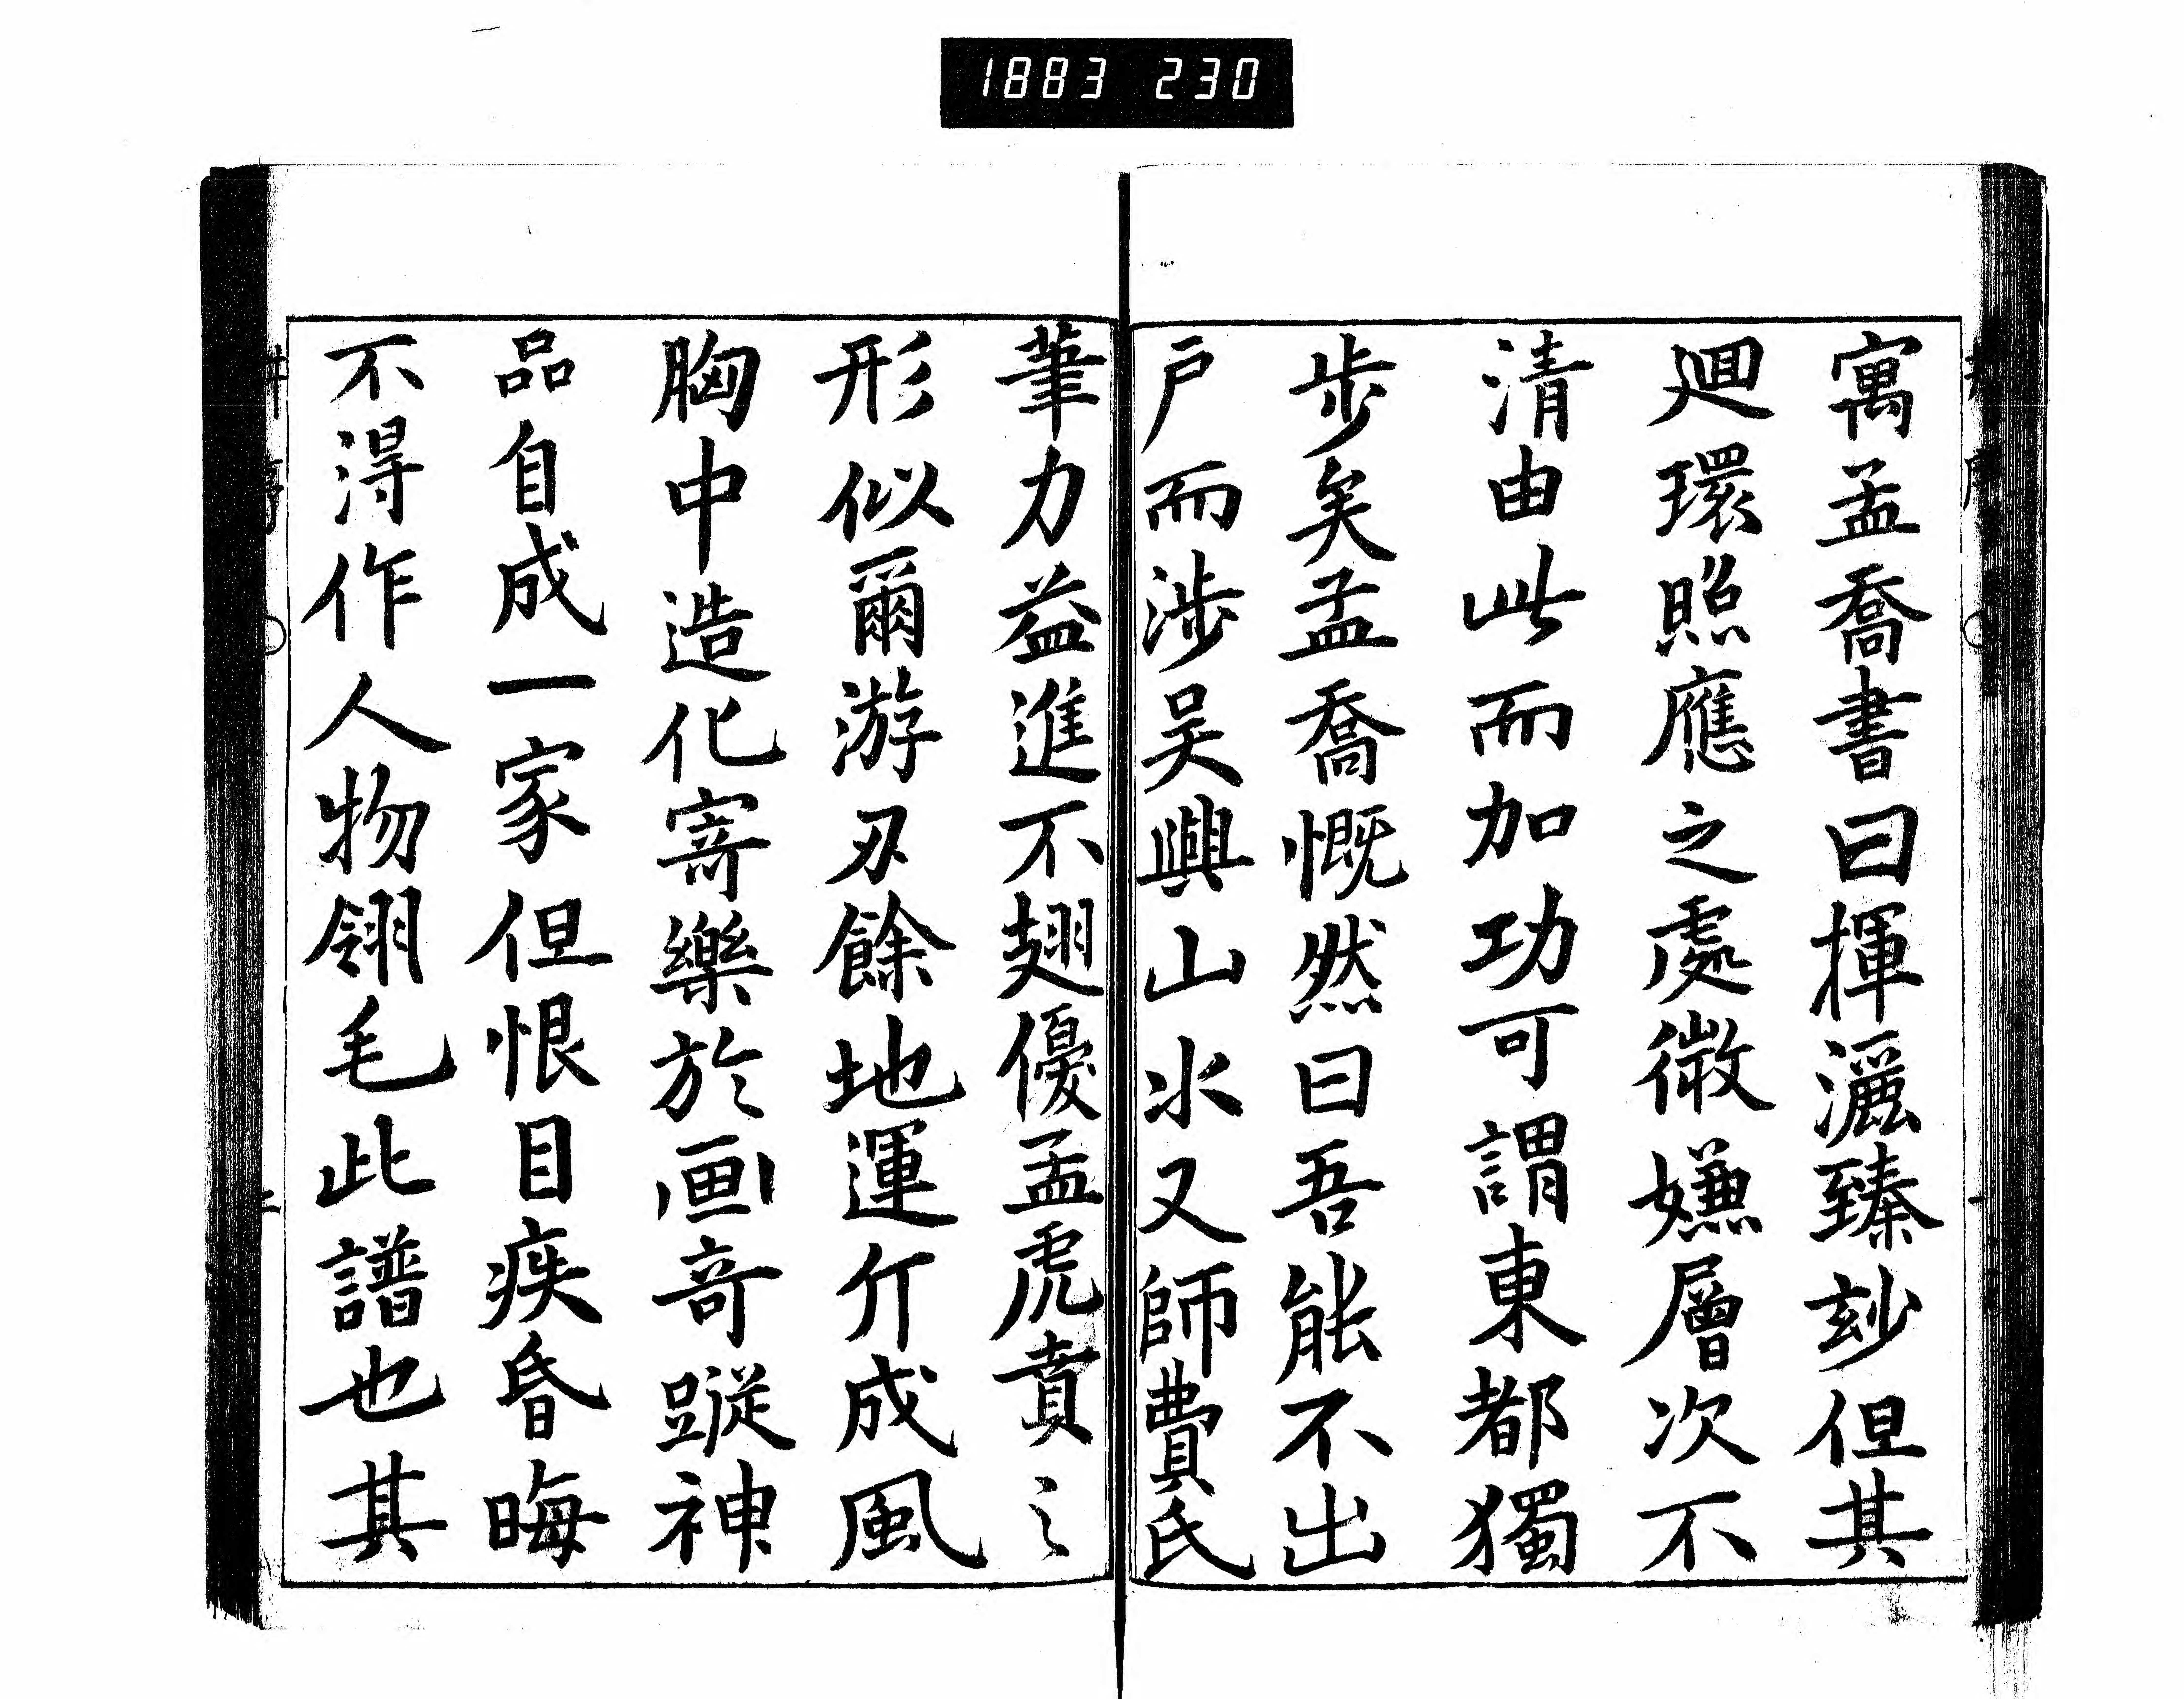 1883 230
寓孟喬書曰揮灑臻玅但其
廻環照應之處微嫌層次不
清由此而加功可謂東都獨
步矣孟喬慨然曰吾能不出
戸而涉吴興山水又師費氏
筆力益進不翅優孟虎賁之
形似爾游刃餘地運斤成風
胸中造化寄樂於画奇蹤神
品自成一家但恨目疾昏晦
不淂作人物翎毛此譜也其